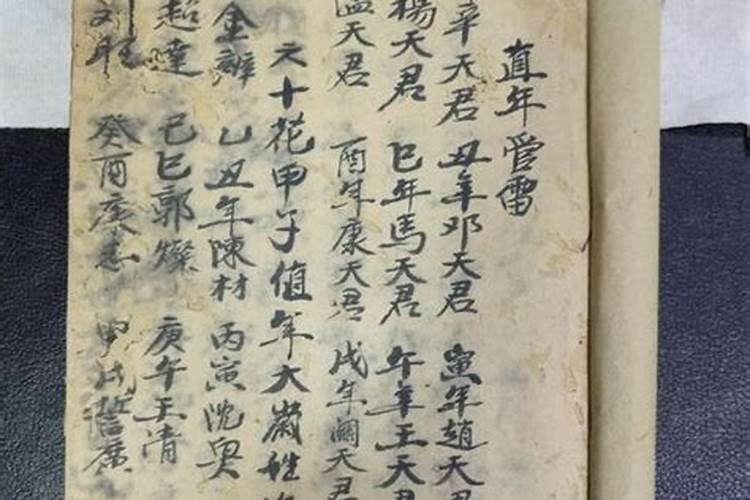 直年管雷
辛天君 丑年邓天君 寅年趙天君
楊天君 巳年馬天君 午年王天君
温天君 酉年康天君 戌年關天君
六十花甲子值年大歲姓
金辦 乙丑年陳材 丙寅沈興
超達 己巳郭燦 庚午王清
癸酉康志 甲戌誓廣